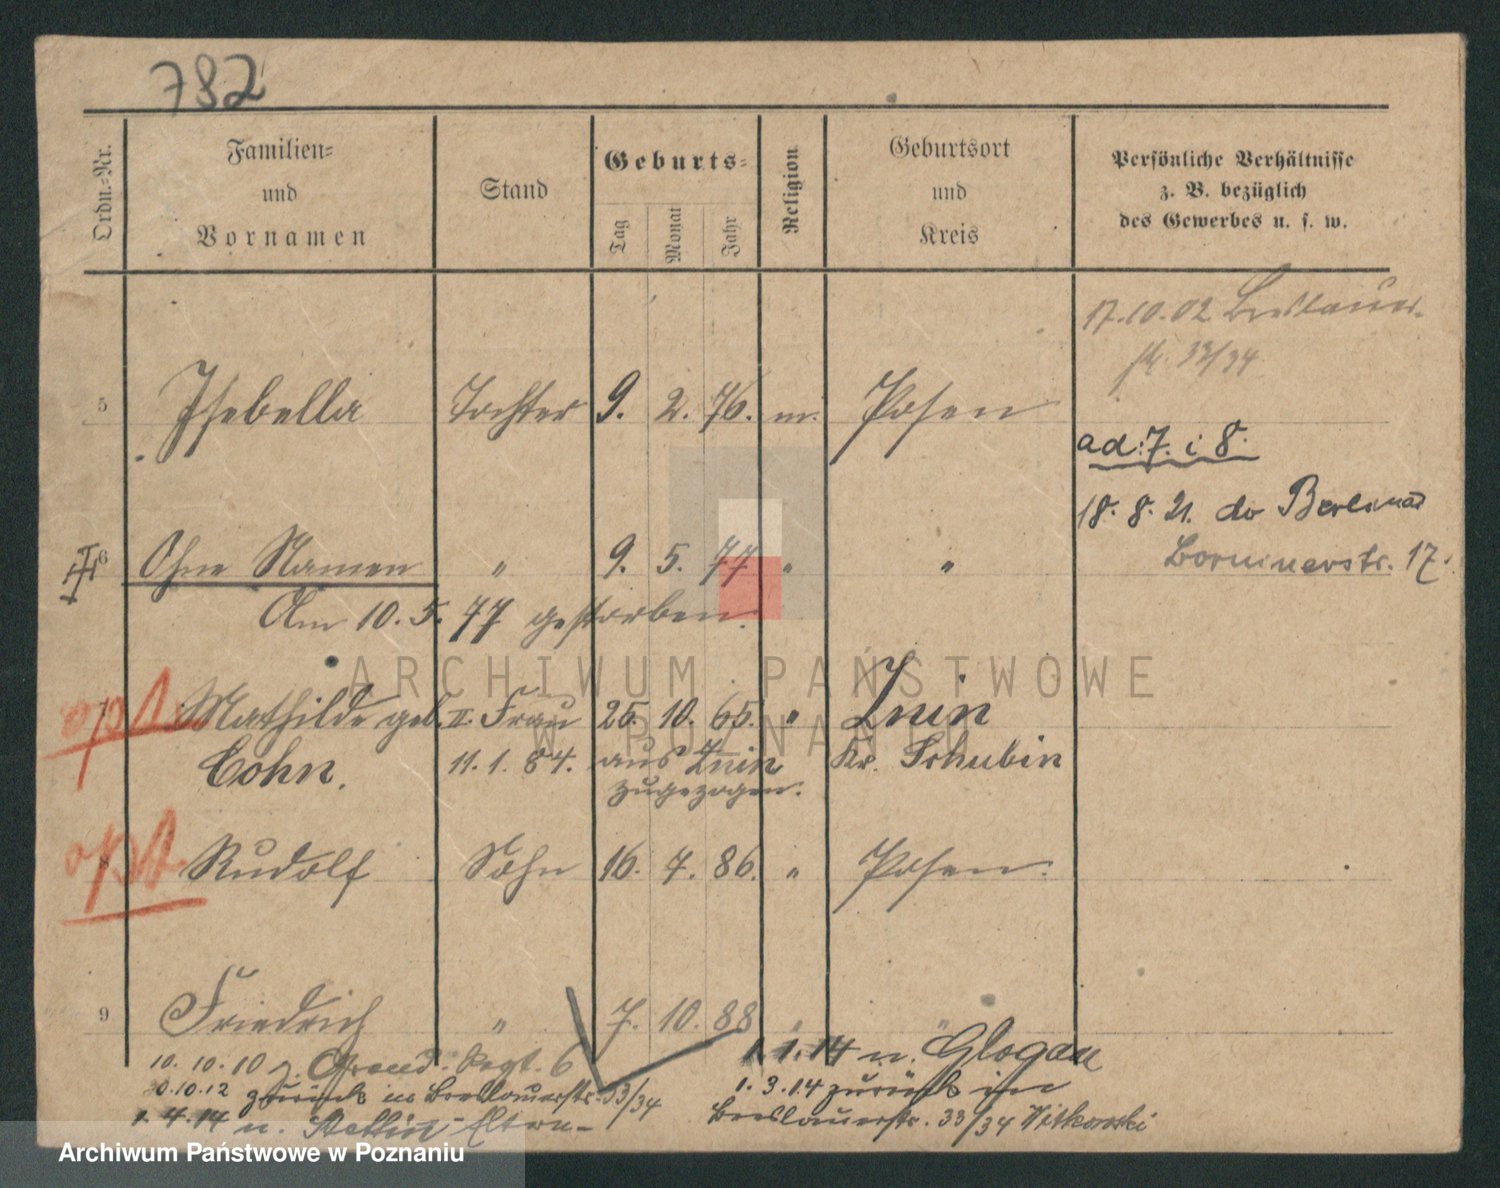 782
Ordn.-Nr.
Familien-
und
Vornamen
Stand
Geburts-
Tag
Monat
Jahr
Religion
Geburtsort
und
Kreis
Persönliche Verhältnisse
z. B. bezüglich
des Gewerbes u. s. w.
17.10.02 Breslauer-
str. 33/34
5 Isebella Tochter 9. 2. 76. m. Posen
ad: 7. i 8.
18. 8. 21. do Berlina
Borninerstr. 17.
6 Ohne Namen " 9. 5. 77 " "
Am 10. 5. 77 gestorben.
opt. 7 Mathilde geb. II. Frau 25. 10. 65. " Znin
Cohn. 11. 1. 84. aus Znin Kr. Schubin
zugezogen.
opt 8 Rudolf Sohn 16. 7. 86. " Posen.
9 Friedrich " 7. 10. 88 " "
10. 10. 10 z. Grend. Regt. 6 1. 1. 14 n. Glogau
20.10.12 zurück in Breslauerstr. 33/34 1. 3. 14 zurück in
1. 4. 14 n. Stettin Breslauerstr. 33/34 Witkowski
ARCHIWUM PAŃSTWOWE
W POZNANIU
Archiwum Państwowe w Poznaniu